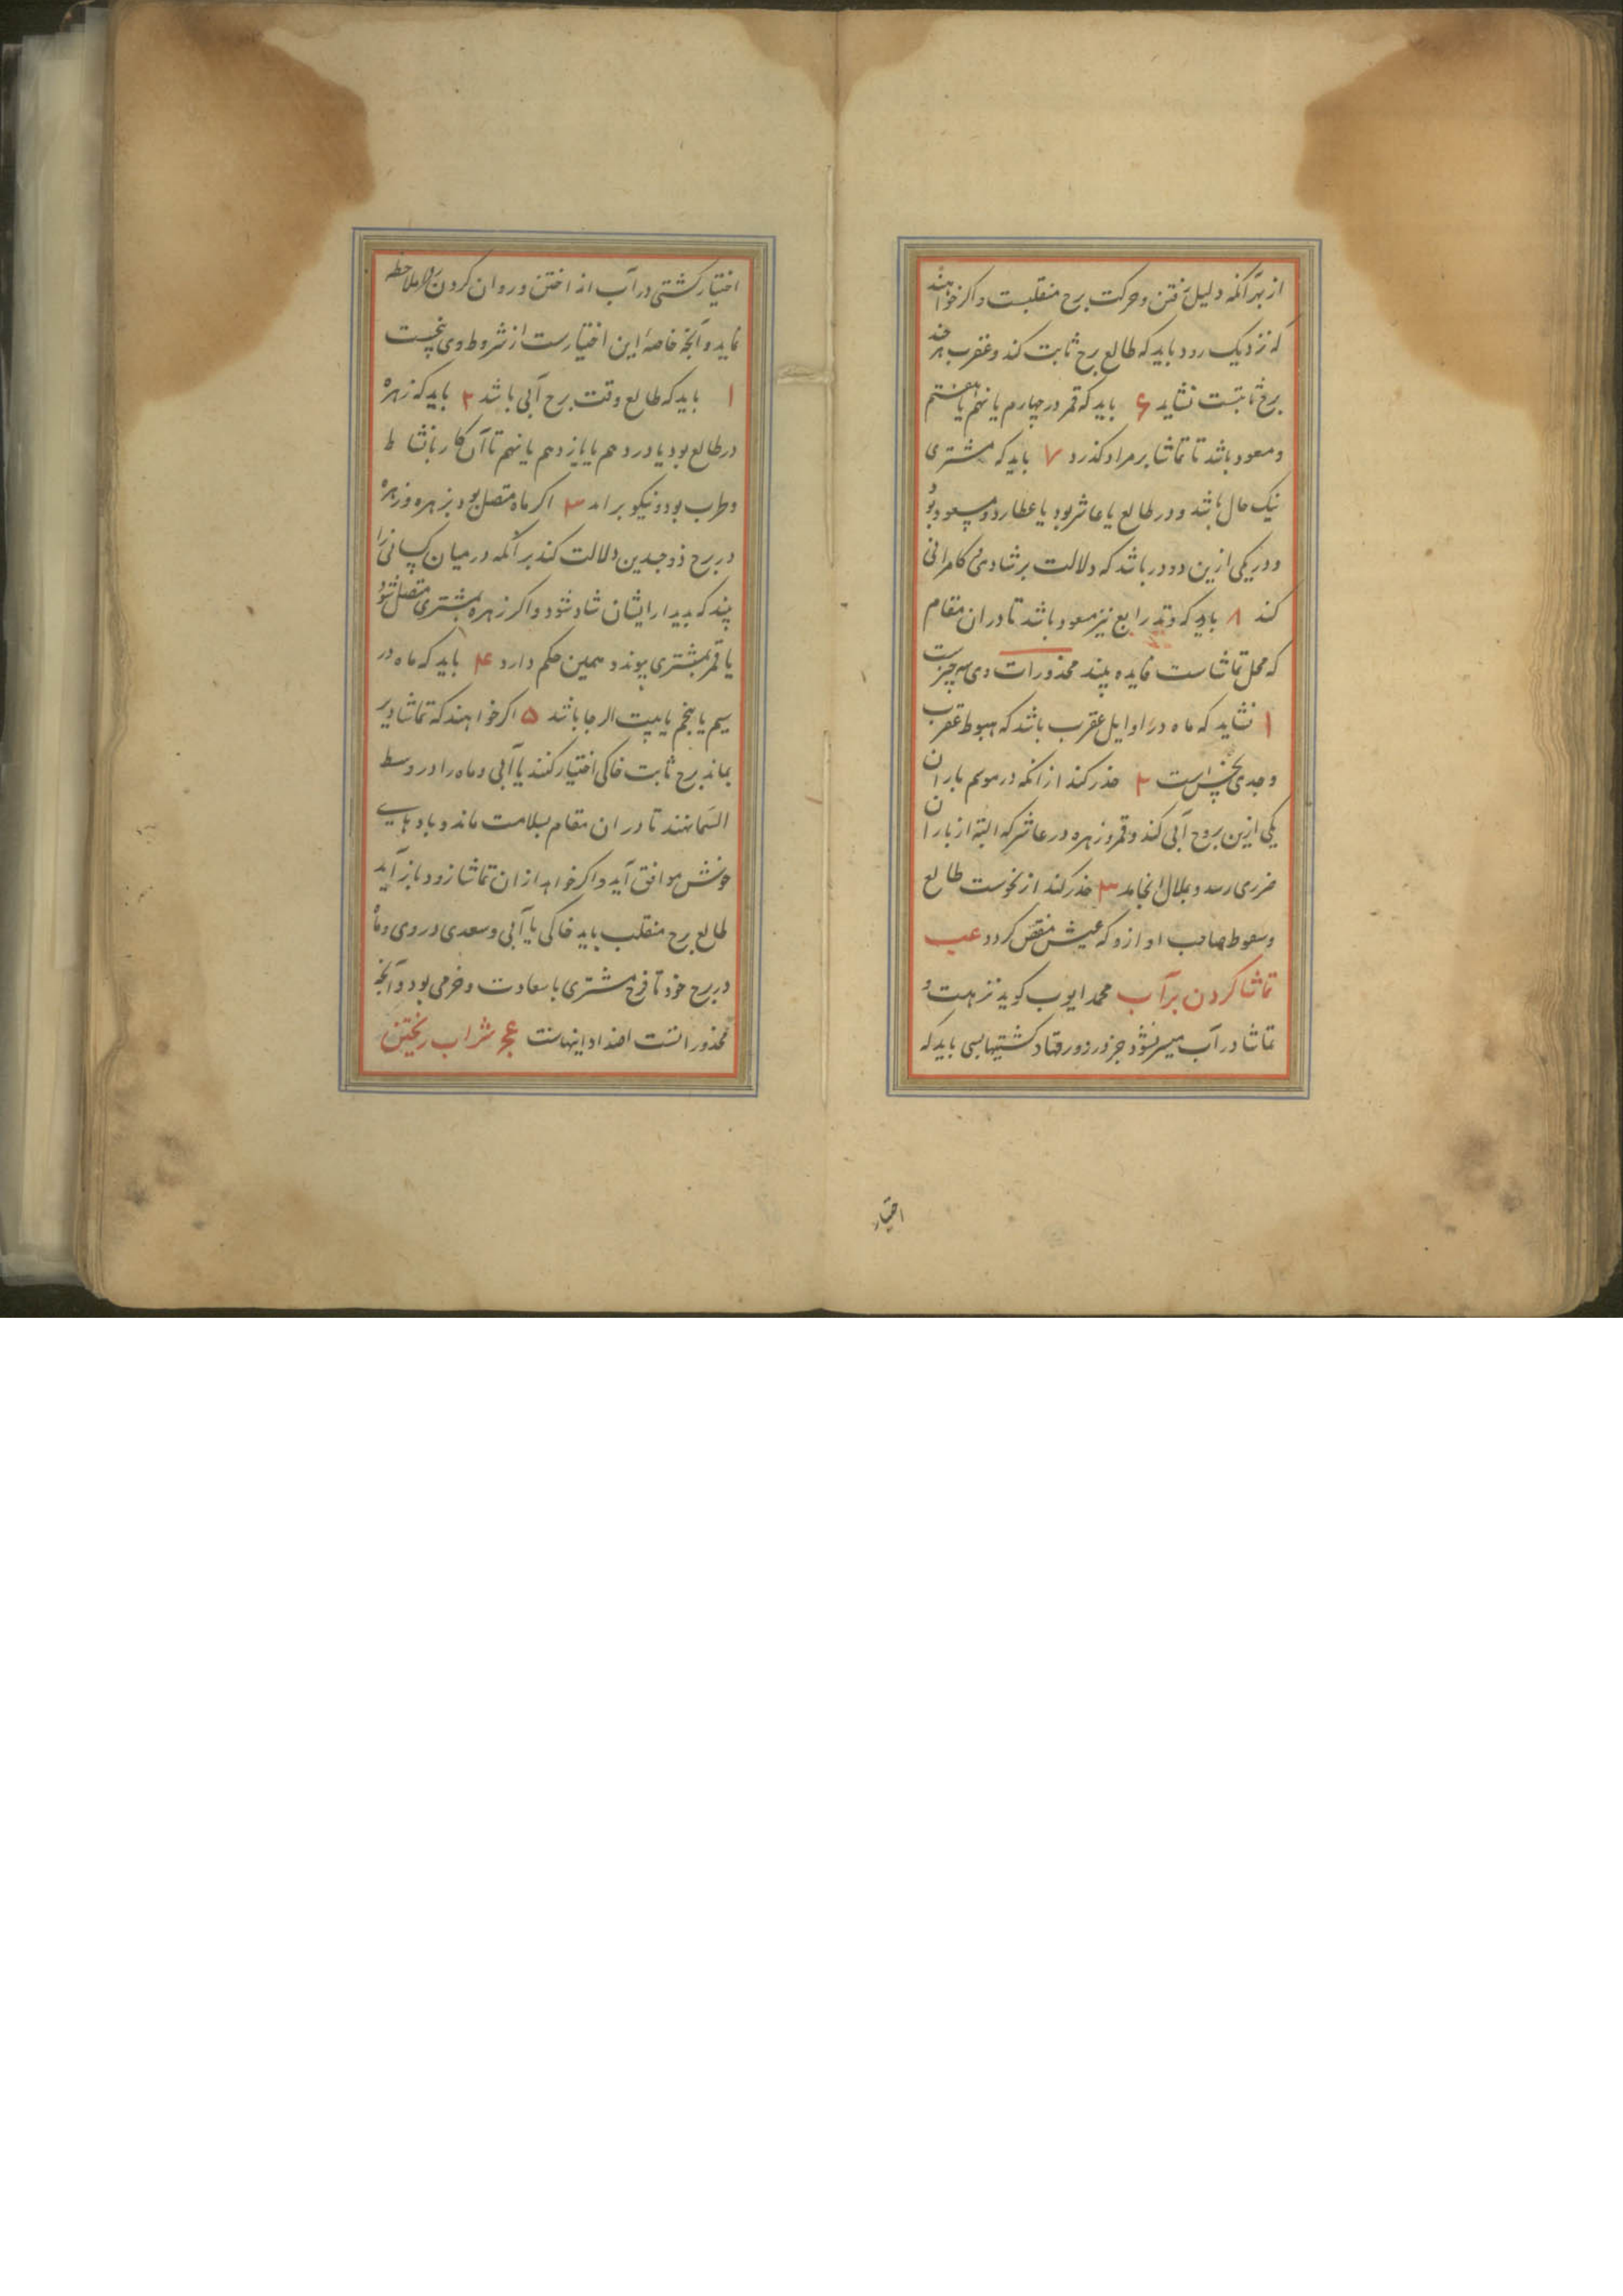 از بهر آنکه دلیل رفتن و حرکت برج منقلبست و اکر خواهند
که نزدیک رود باید که طالع برج ثابت کند و عقرب هر چند
برج ثابتست نشاید ۶ باید که قمر در چهارم یا نهم یا هفتم
و مسعود باشد تا تماشا بر مراد کذرد ۷ باید که مشتری
نیک حال باشد و در طالع یا عاشر بود یا عطارد مسعود بود
و در یکی ازین دو در باشد که دلالت بر شادی و کامرانی
کند ۸ باید که وتد رابع نیز مسعود باشد تا در ان مقام
که محل تماشاست فایده بیند محذورات وی سه چیزست
۱ نشاید که ماه در اوایل عقرب باشد که هبوط عقرب
و جدی نحس است ۲ حذر کند از انکه در موسم باران
یکی ازین بروج آبی کند و قمر و زهره در عاشر که البته از باران
ضرری رسد و بملال انجامد ۳ حذر کند از نحوست طالع
و سقوط صاحب او از و که عیش منغص کردد عب
تماشا کردن بر آب محمد ایوب کوید نزهت و
تماشا در آب میسر نشود جز در زورقها و کشتیها پس باید که
اختیار
اختیار کشتی در آب انداختن و روان کردن را ملاحظه
نماید و آنچه خاصهٔ این اختیارست از شروط وی پنجست
۱ باید که طالع وقت برج آبی باشد ۲ باید که زهره
در طالع بود یا در دهم یا یازدهم یا نهم تا آن کار با نشاط
و طرب بود و نیکو براید ۳ اکر ماه متصل بود بزهره و زهره
در برج ذوجسدین دلالت کند بر آنکه در میان کسانی را
بیند که بدیدار ایشان شاد شود و اکر زهره بمشتری متصل شود
یا قمر بمشتری پیوندد همین حکم دارد ۴ باید که ماه در
سیم یا پنجم یا بیت الرجا باشد ۵ اکر خواهند که تماشا دیر
بماند برج ثابت خاکی اختیار کنند یا آبی و ماه را در وسط
السما نهند تا در ان مقام بسلامت ماند و بادهایی
خوش موافق آید و اکر خواهد از ان تماشا زود باز آید
طالع برج منقلب باید خاکی یا آبی و سعدی در وی و ماه
در برج خود تا فرح مشتری با سعادت و خرمی بود و آنچه
محذور انست اضداد اینهاست عج شراب ریختن